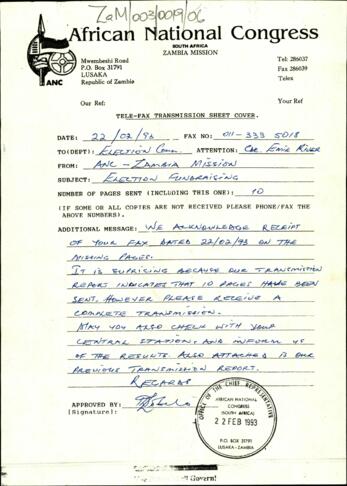 ZaM/003/0019/06
African National Congress
SOUTH AFRICA
ZAMBIA MISSION
Mwembeshi Road
P.O. Box 31791
LUSAKA
Republic of Zambia
Tel: 286037
Fax 286039
Telex
ANC
Our Ref:
Your Ref
TELE-FAX TRANSMISSION SHEET COVER.
DATE: 22/02/93 FAX NO: 011-333 5018
TO(DEPT): ELECTION Comm. ATTENTION: Cde
FROM: ANC-ZAMBIA MISSION
SUBJECT: ELECTION FUNDRAISING
NUMBER OF PAGES SENT (INCLUDING THIS ONE): 10
(IF SOME OR ALL COPIES ARE NOT RECEIVED PLEASE PHONE/FAX THE
ABOVE NUMBERS).
ADDITIONAL MESSAGE: WE ACKNOWLEDGE RECEIPT
OF YOUR FAX DATED 22/02/93 ON THE
MISSING PAGES.
IT IS SUPRISING BECAUSE OUR TRANSMISSION
REPORT INDICATES THAT 10 PAGES HAVE BEEN
SENT. HOWEVER PLEASE RECEIVE A
COMPLETE TRANSMISSION.
MAY YOU ALSO CHECK WITH YOUR
CENTRAL STATION, AND INFORM US
OF THE RESULTS. ALSO ATTACHED IS OUR
PREVIOUS TRANSMISSION REPORT.
REGARDS
APPROVED BY:
[Signature]:
OFFICE OF THE CHIEF REPRESENTATIVE
AFRICAN NATIONAL
CONGRESS
(SOUTH AFRICA)
22 FEB 1993
P.O. BOX 31791
LUSAKA - ZAMBIA